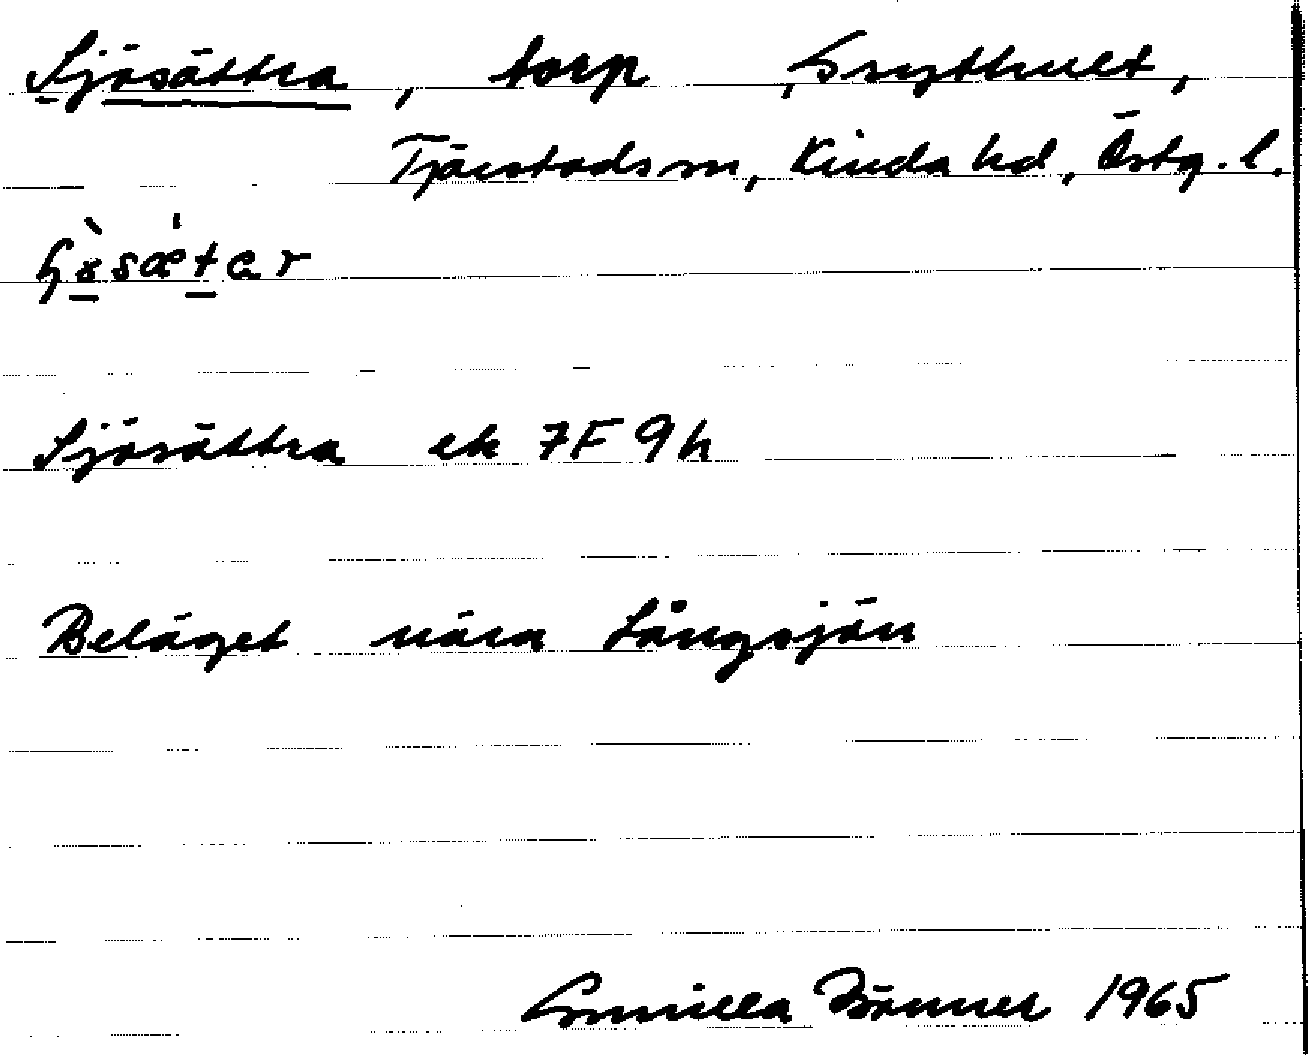 Sjösättra, torp, Grytthult,
Tjärstads sn, Kinda hd, Östg. l.
Sjösättra ek 7F 9h
Beläget nära Långsjön
Gunilla Bönner 1965